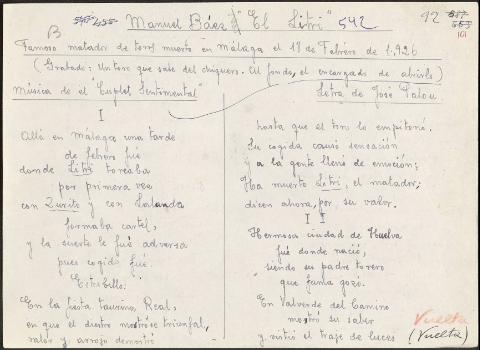 B 542 Manuel Báez "El Litri" 542 92
101
Famoso matador de toros muerto en Málaga el 18 de Febrero de 1.926
(Grabado: Un toro que sale del chiquero. Al fondo, el encargado de abrirlo)
Música de el "Cuplet Sentimental"
Letra de José Palou.
I
Allá en Málaga una tarde
de febrero fué
donde Litri toreaba
por primera vez
con Zurito y con Lalanda
formaba cartel,
y la suerte le fué adversa
pues cogido fué.
Estribillo.
En la fiesta taurina Real,
en que el diestro mostróse triunfal,
valor y arrojo demostró
hasta que el toro lo empitonó.
Su cogida causó sensación
y a la gente llenó de emoción;
Ha muerto Litri, el matador;
dicen ahora, por, su valor.
II
Hermosa ciudad de Huelva
fué donde nació,
siendo su padre torero
que fama gozó.
En Valverde del Camino
mostró su saber
y vistió el traje de luces
Vuelta
(Vuelta)